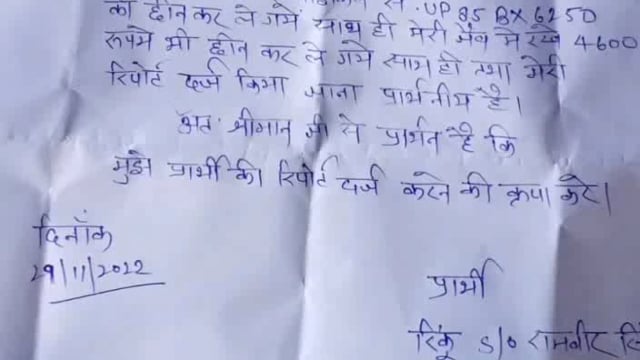 UP 85 BX 6250
का छीन कर ले गये साथ ही मेरी जेब मे रखे 4600
रूपये भी छीन कर ले गये साथ ही तथा मेरी
रिपोर्ट दर्ज किया जाना प्रार्थनीय है।
अतः श्रीमान जी से प्रार्थना है कि
मुझे प्रार्थी की रिपोर्ट दर्ज करने की कृपा करे।
दिनाँक
29/11/2022
प्रार्थी
रिंकू S/o रामवीर